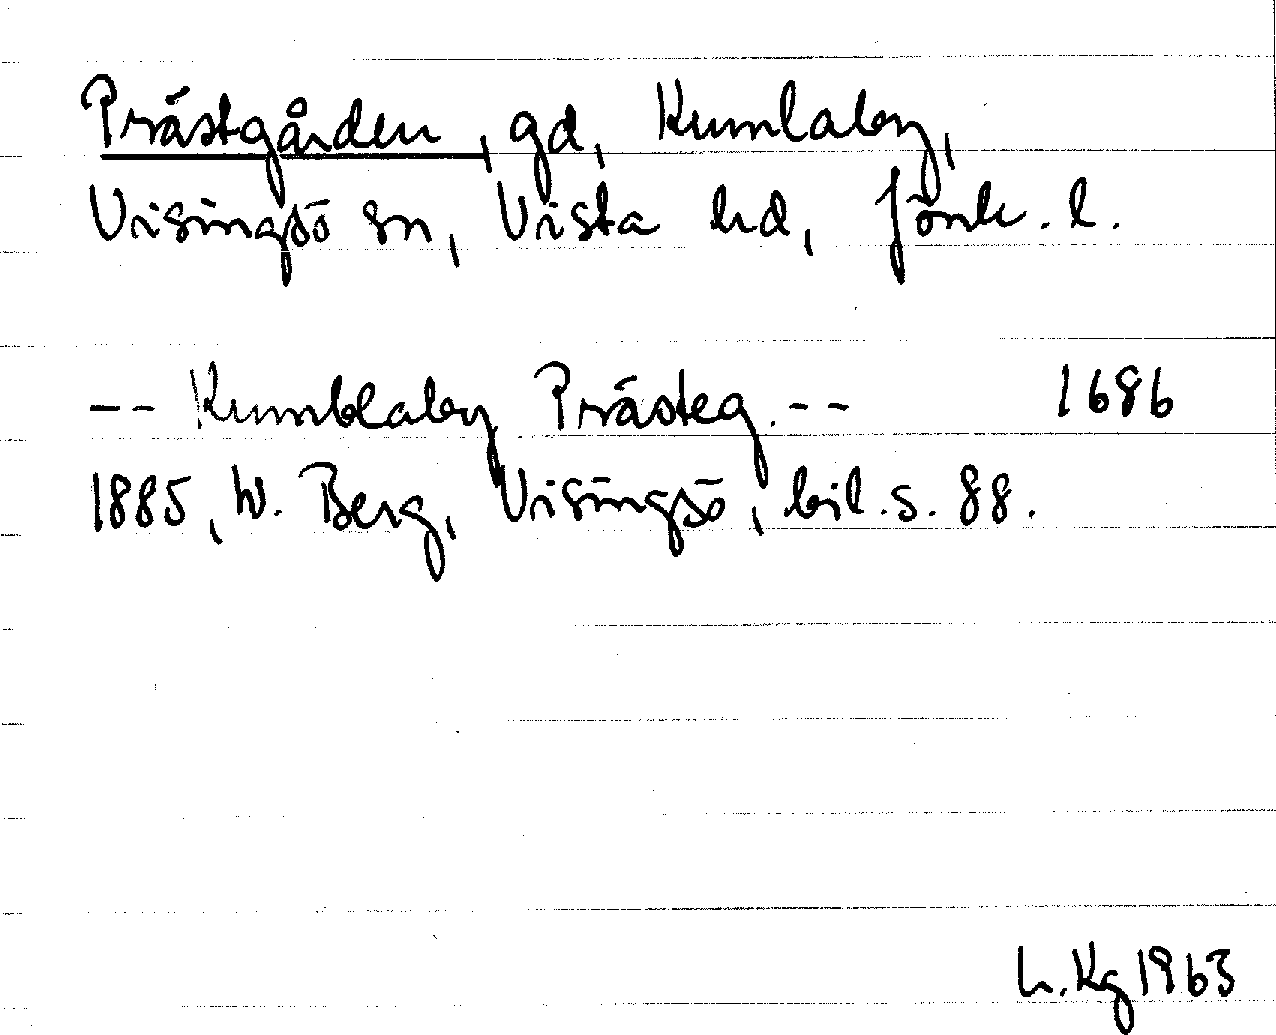 Prästgården, gd, Kumlaby,
Visingsö sn, Vista hd, Jönk. l.
-- Kumblaby Prästeg. -- 1686
1885, W. Berg, Visingsö, bil. s. 88.
L. Kg 1963